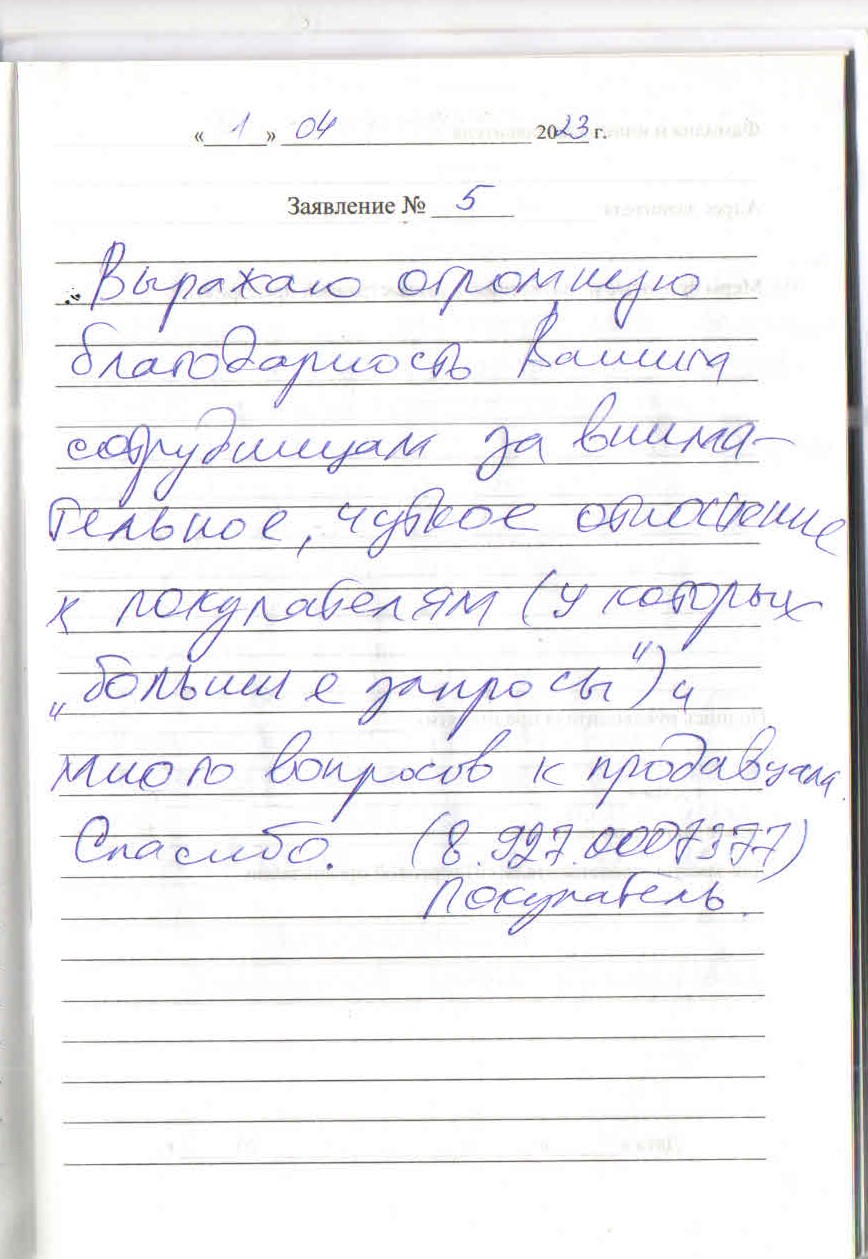 « 1 » 04 2023 г.
Заявление № 5
Выражаю огромную
благодарность Вашим
сотрудницам за внима-
тельное, чуткое отношение
к покупателям (у которых
„большие запросы") и
много вопросов к продавцам.
Спасибо. (8.927.0007377)
Покупатель.